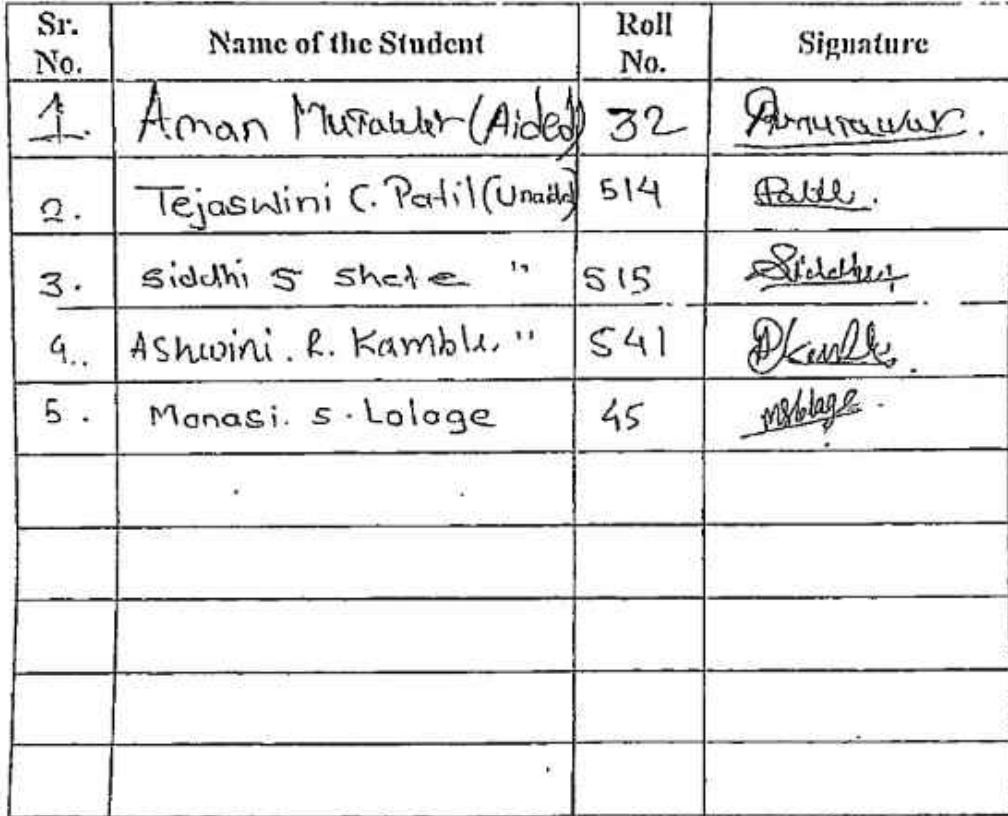 Sr. No. Name of the Student Roll No. Signature
1. Aman Murawar (Aided) 32 Amurawar.
2. Tejaswini C. Patil (Unaided) 514 Patil.
3. Siddhi S Shete " 515 Siddhi
4.. Ashwini. R. Kamble. " 541 AKamble.
5. Manasi. S. Lolage 45 mslolage.